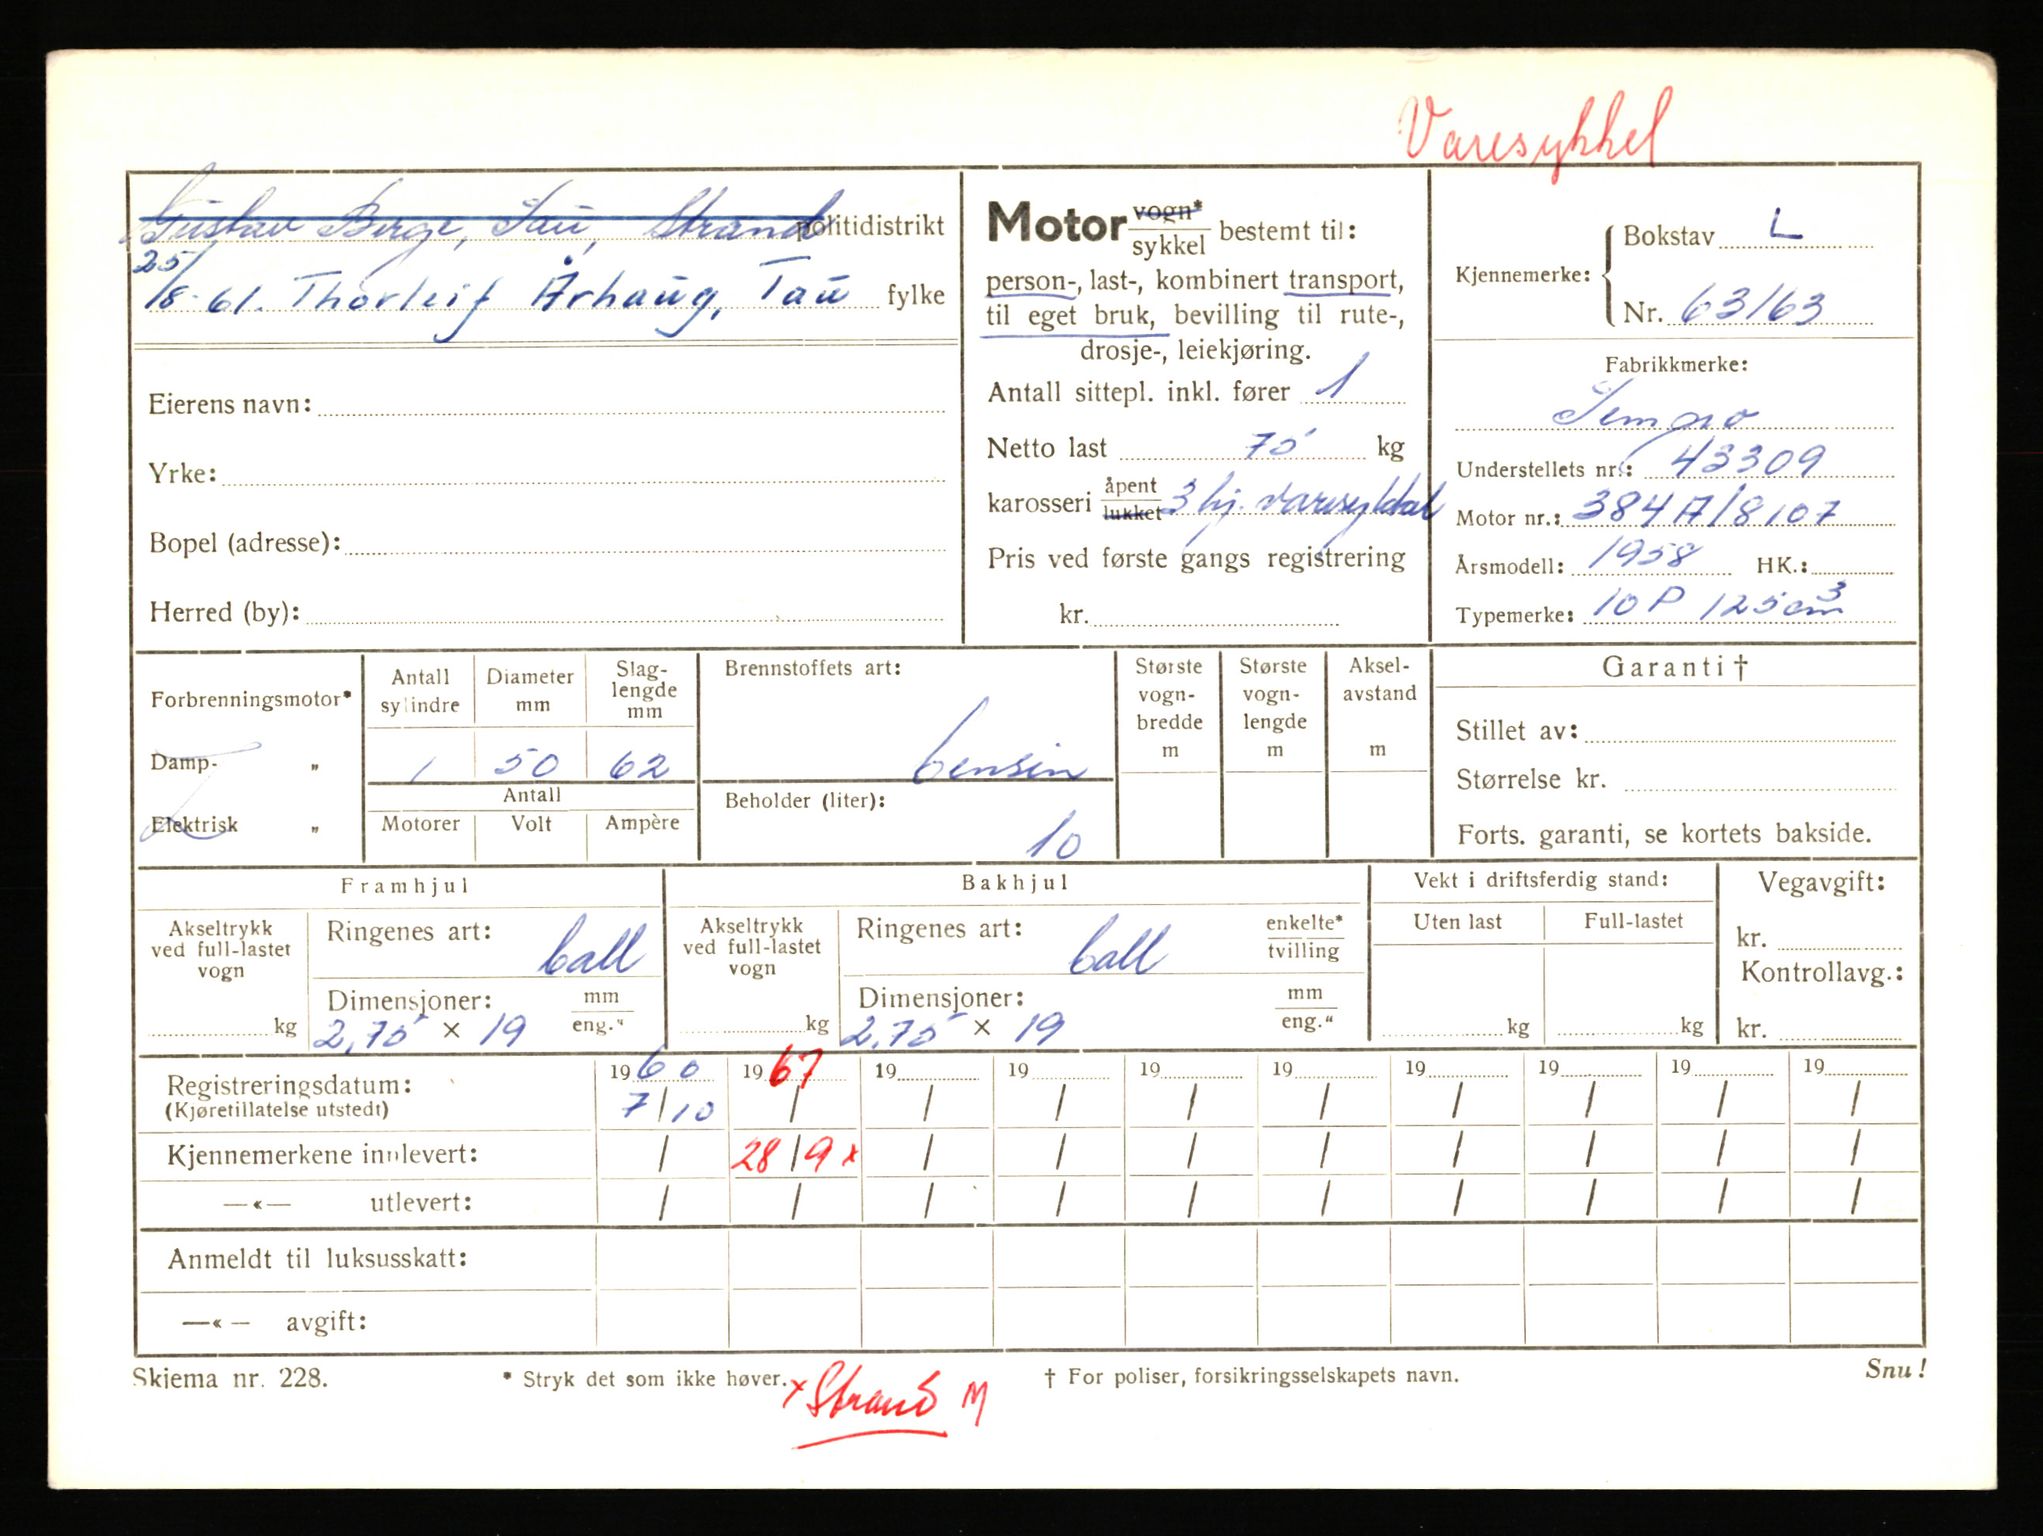 Varesykkel
Gustav Berge, Tau, Strand politidistrikt
25/8-61. Thorleif Århaug, Tau fylke
Eierens navn:
Yrke:
Bopel (adresse):
Herred (by):
Motor vogn* sykkel bestemt til:
person-, last-, kombinert transport,
til eget bruk, bevilling til rute-,
drosje-, leiekjøring.
Antall sittepl. inkl. fører 1
Netto last 75 kg
karosseri åpent lukket 3 hj. varesykkel
Pris ved første gangs registrering
kr.
Kjennemerke: Bokstav L
Nr. 63163
Fabrikkmerke:
Tempo
Understellets nr.: 43309
Motor nr.: 384A/8107
Årsmodell: 1958 HK.:
Typemerke: 10 P 125 cm3
Forbrenningsmotor*
Damp- „
Elektrisk „
Antall sylindre
Diameter mm
Slag-lengde mm
1 50 62
Antall
Motorer Volt Ampère
Brennstoffets art:
bensin
Beholder (liter):
10
Største vogn-bredde m
Største vogn-lengde m
Aksel-avstand m
Garanti †
Stillet av:
Størrelse kr.
Forts. garanti, se kortets bakside.
Framhjul
Akseltrykk ved full-lastet vogn
kg
Ringenes art:
ball
Dimensjoner: mm eng."
2,75 × 19
Bakhjul
Akseltrykk ved full-lastet vogn
kg
Ringenes art: enkelte* tvilling
ball
Dimensjoner: mm eng."
2,75 × 19
Vekt i driftsferdig stand:
Uten last Full-lastet
kg kg
Vegavgift:
kr.
Kontrollavg.:
kr.
Registreringsdatum: 1960 1967 19 19 19 19 19 19 19 19
(Kjøretillatelse utstedt) 7/10 / / / / / / / / /
Kjennemerkene innlevert: / 28/9 x / / / / / / / /
—«— utlevert: / / / / / / / / / /
Anmeldt til luksusskatt:
—«— avgift:
Skjema nr. 228. * Stryk det som ikke høver. † For poliser, forsikringsselskapets navn. Snu!
x Strand M